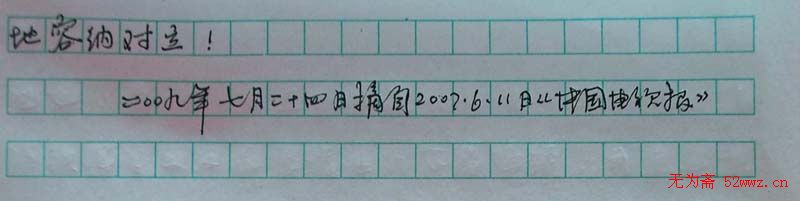 地容纳对立！
二00九年七月二十四日摘自2007.6.11日《中国电视报》
无为斋 52wwz.cn